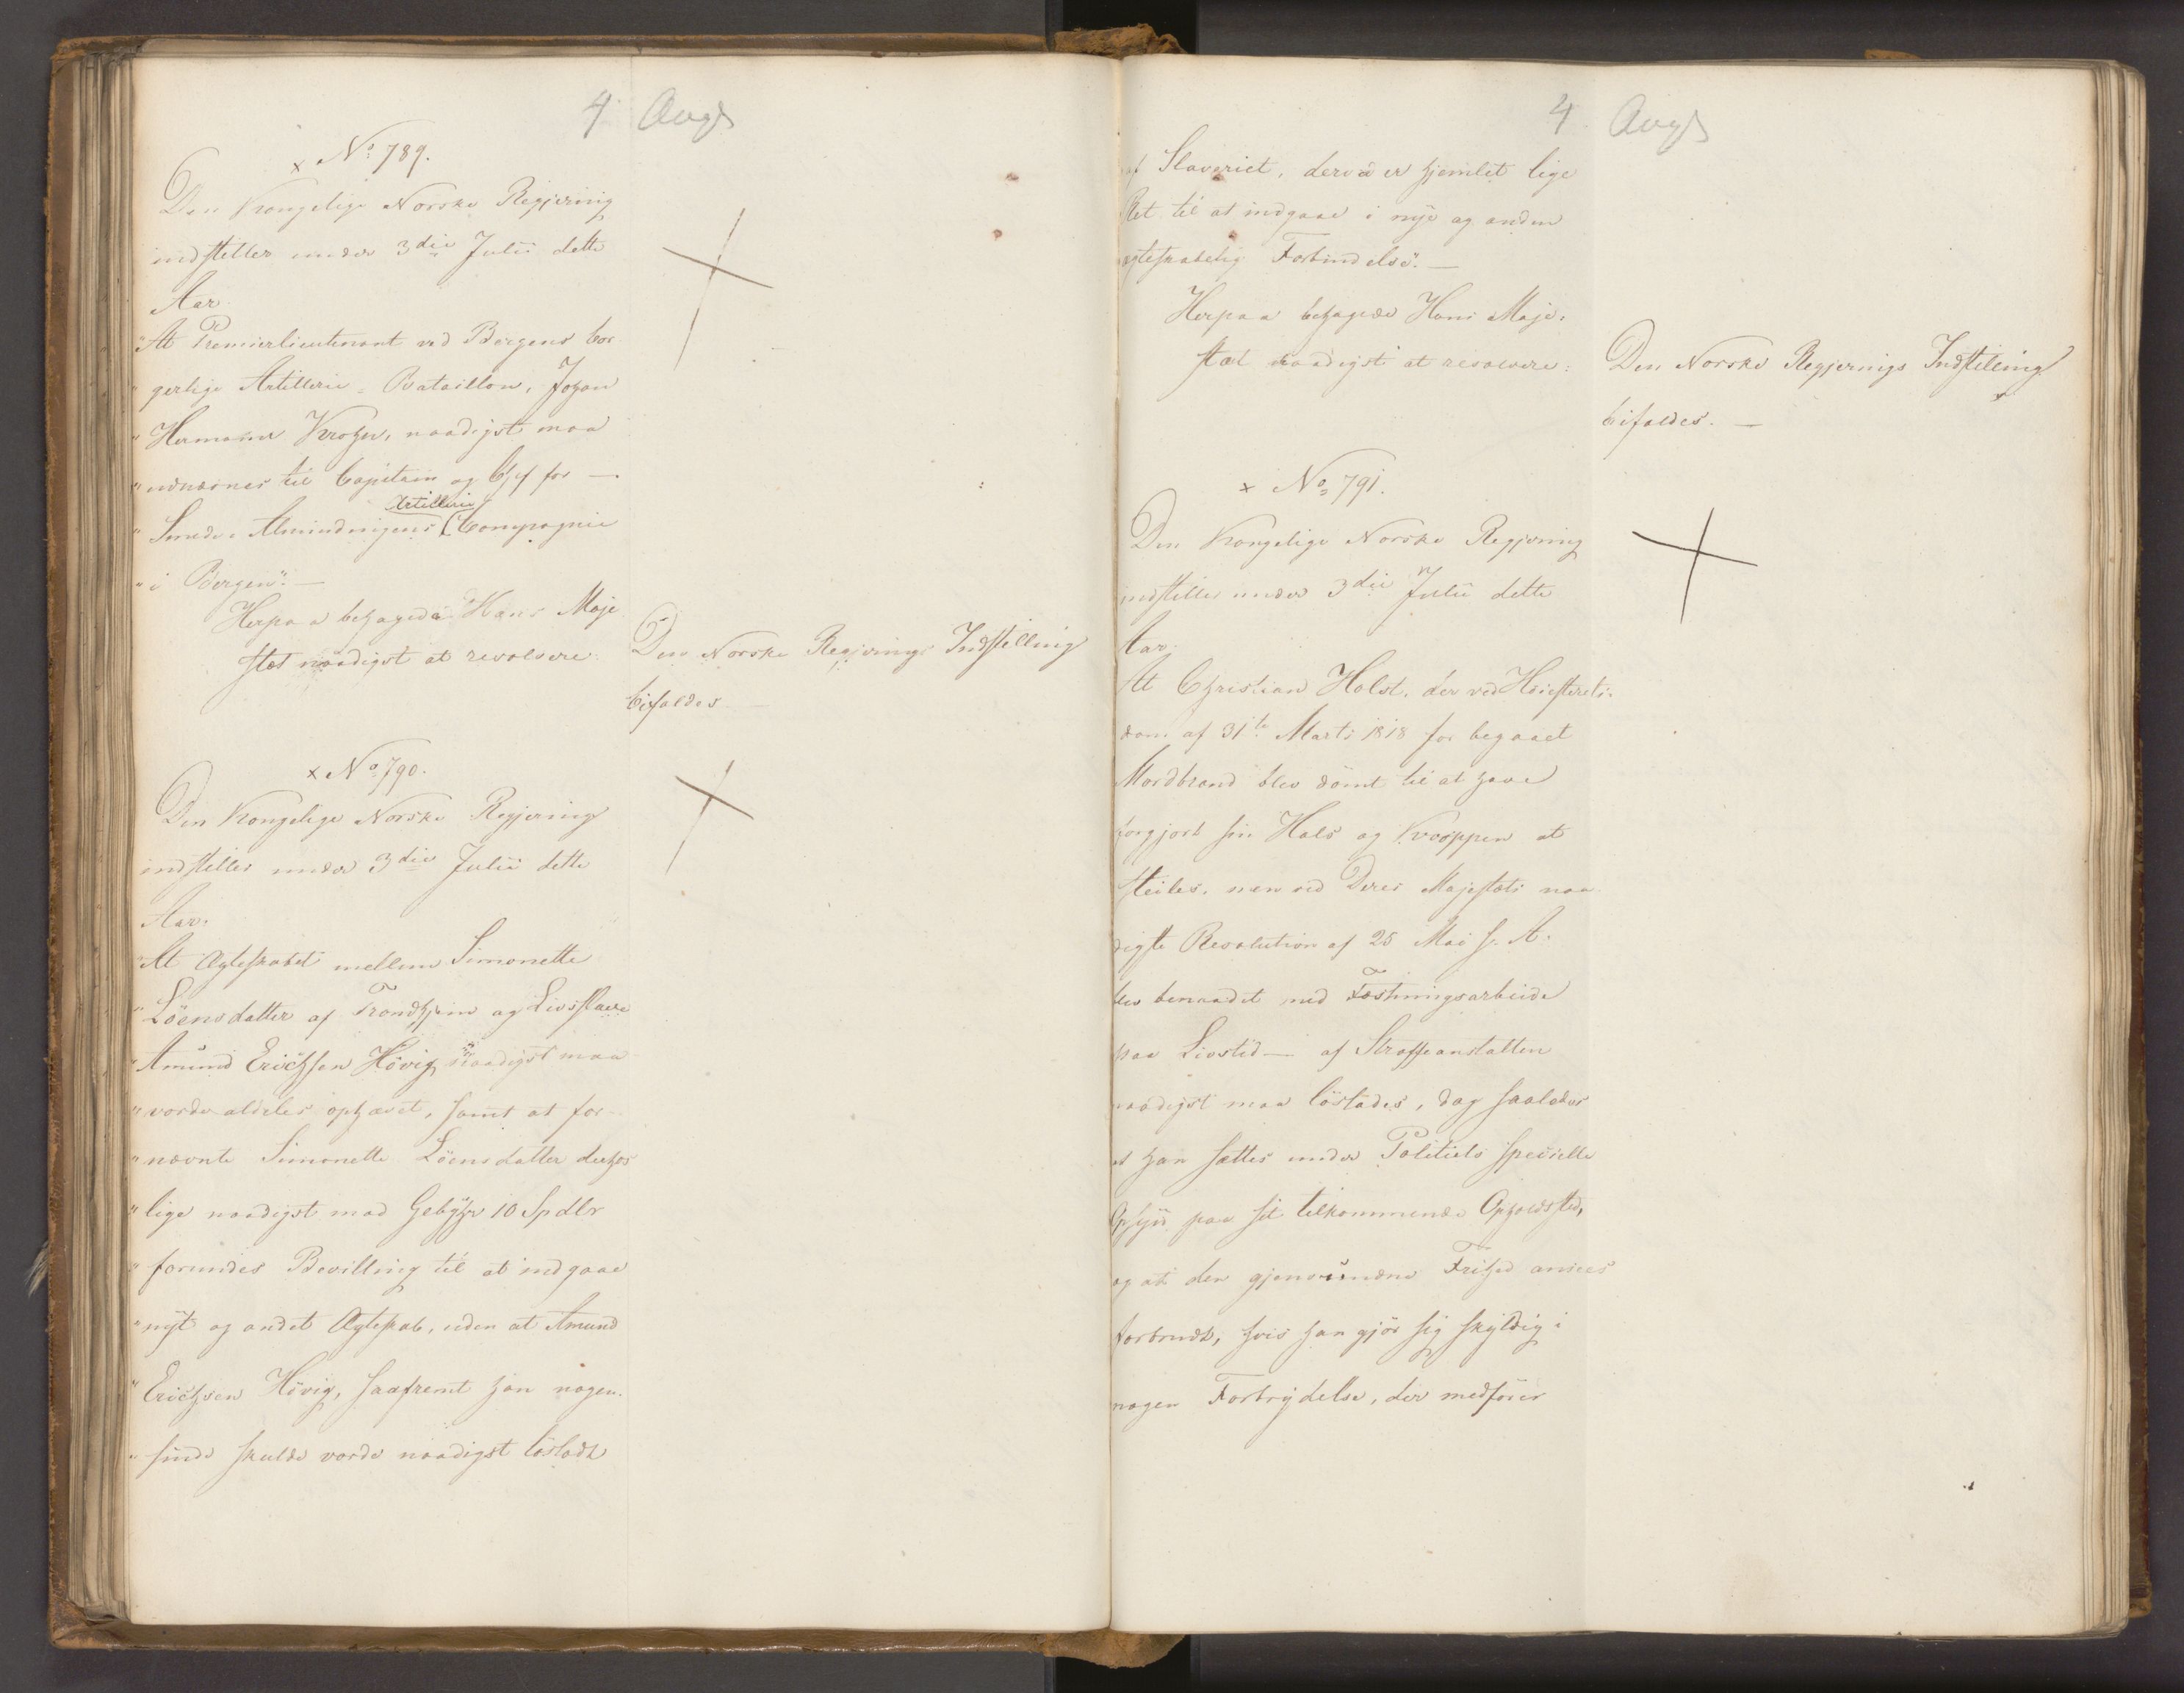 4 Augs
x No 789.
Den Kongelige Norske Regjering
indstiller under 3die Julii dette
Aar
"At Premierlieutenant ved Bergens bor
"gerlige Artillerie-Bataillon, Johan
"Hermann Krohn, naadigst maa
"udnævnes til Capitain og Chef for —
"Smede-Almindingens Artillerie Compagnie
"i Bergen". —
Herpaa behagede Hans Maje
stæt naadigst at resolvere:
Den Norske Regjerings Indstilling
bifaldes —
x No 790.
Den Kongelige Norske Regjering
indstiller under 3die Julii dette
Aar.
"At Ægteskabet mellem Simonette
"Löensdatter af Trondhjem og Livsslave
"Amund Erichsen Hövig naadigst maa
"vorde aldeles ophævet, samt at for-
"nævnte Simonette Löensdatter derhos
"lige naadigst mod Gebyhr 10 Spdlr
"forundes Bevilling til at indgaae
"nyt og andet Ægteskab, uden at Amund
"Erichsen Hövig, saafremt han nogen-
"sinde skulde vorde naadigst lösladt
4 Augs
af Slaveriet, derved er hjemlet lige
Ret til at indgaae i nye og anden
ægteskabelig Forbindelse". —
Herpaa behagede Hans Maje-
stæt naadigst at resolvere:
Den Norske Regjerings Indstilling
bifaldes. —
x No 791.
Den Kongelige Norske Regjering
indstiller under 3die Julii dette
Aar.
At Christian Holst, der ved Höiesterets-
dom af 31te Marts 1818 for begaaet
Mordbrand blev dömt til at have
forgjort sin Hals og Kroppen at
steiles, men ved Deres Majestæts naa
digste Resolution af 28 Mai s. A.
blev benaadet med Fæstningsarbeide
paa Livstid — af Straffeanstalten
naadigst maa löslades, dog saaledes
at han sættes under Politiets specielle
Opsyn paa sit tilkommende Opholdssted,
og at den gjenvundne Frihed ansees
forbrudt, hvis han gjör sig skyldig i
nogen Forbrydelse, der medförer